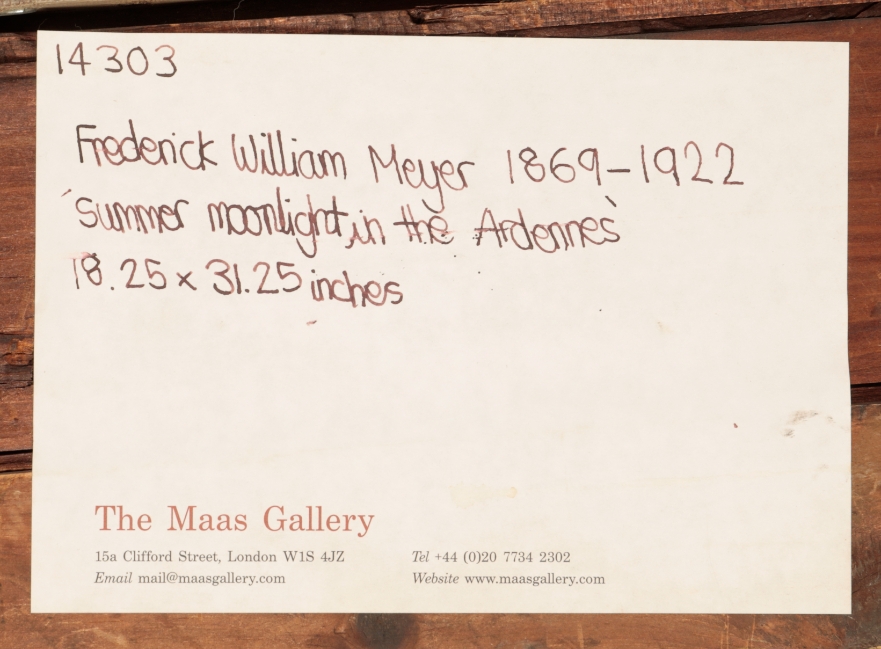 14303
Frederick William Meyer 1869-1922
'summer moonlight, in the Ardennes'
18.25 x 31.25 inches
The Maas Gallery
15a Clifford Street, London W1S 4JZ
Tel +44 (0)20 7734 2302
Email mail@maasgallery.com
Website www.maasgallery.com